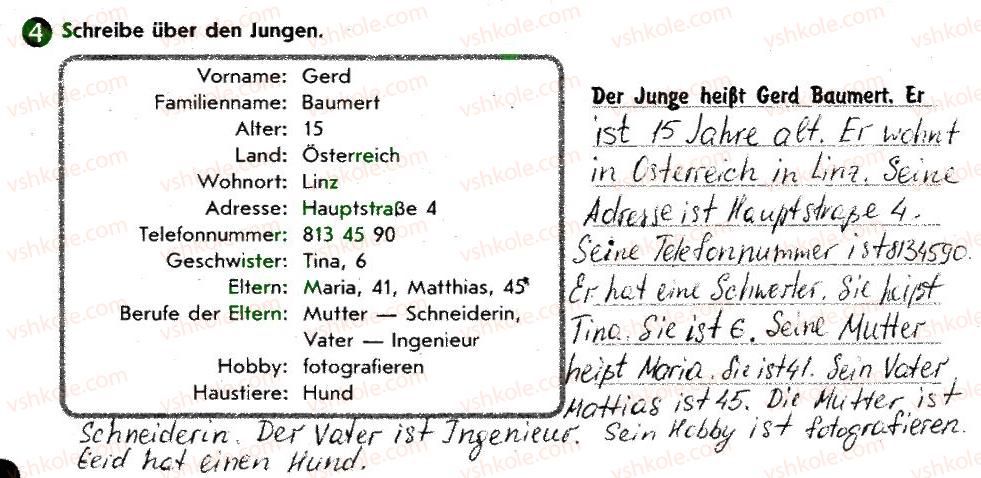 4 Schreibe über den Jungen.
Vorname: Gerd
Familienname: Baumert
Alter: 15
Land: Österreich
Wohnort: Linz
Adresse: Hauptstraße 4
Telefonnummer: 813 45 90
Geschwister: Tina, 6
Eltern: Maria, 41, Matthias, 45
Berufe der Eltern: Mutter — Schneiderin,
Vater — Ingenieur
Hobby: fotografieren
Haustiere: Hund
Der Junge heißt Gerd Baumert. Er
ist 15 Jahre alt. Er wohnt
in Österreich in Linz. Seine
Adresse ist Hauptstraße 4.
Seine Telefonnummer ist 8134590.
Er hat eine Schwester. Sie heißt
Tina. Sie ist 6. Seine Mutter
heißt Maria. Sie ist 41. Sein Vater
Mattias ist 45. Die Mutter ist
Schneiderin. Der Vater ist Ingenieur. Sein Hobby ist fotografieren.
hat einen Hund.
vshkole.com